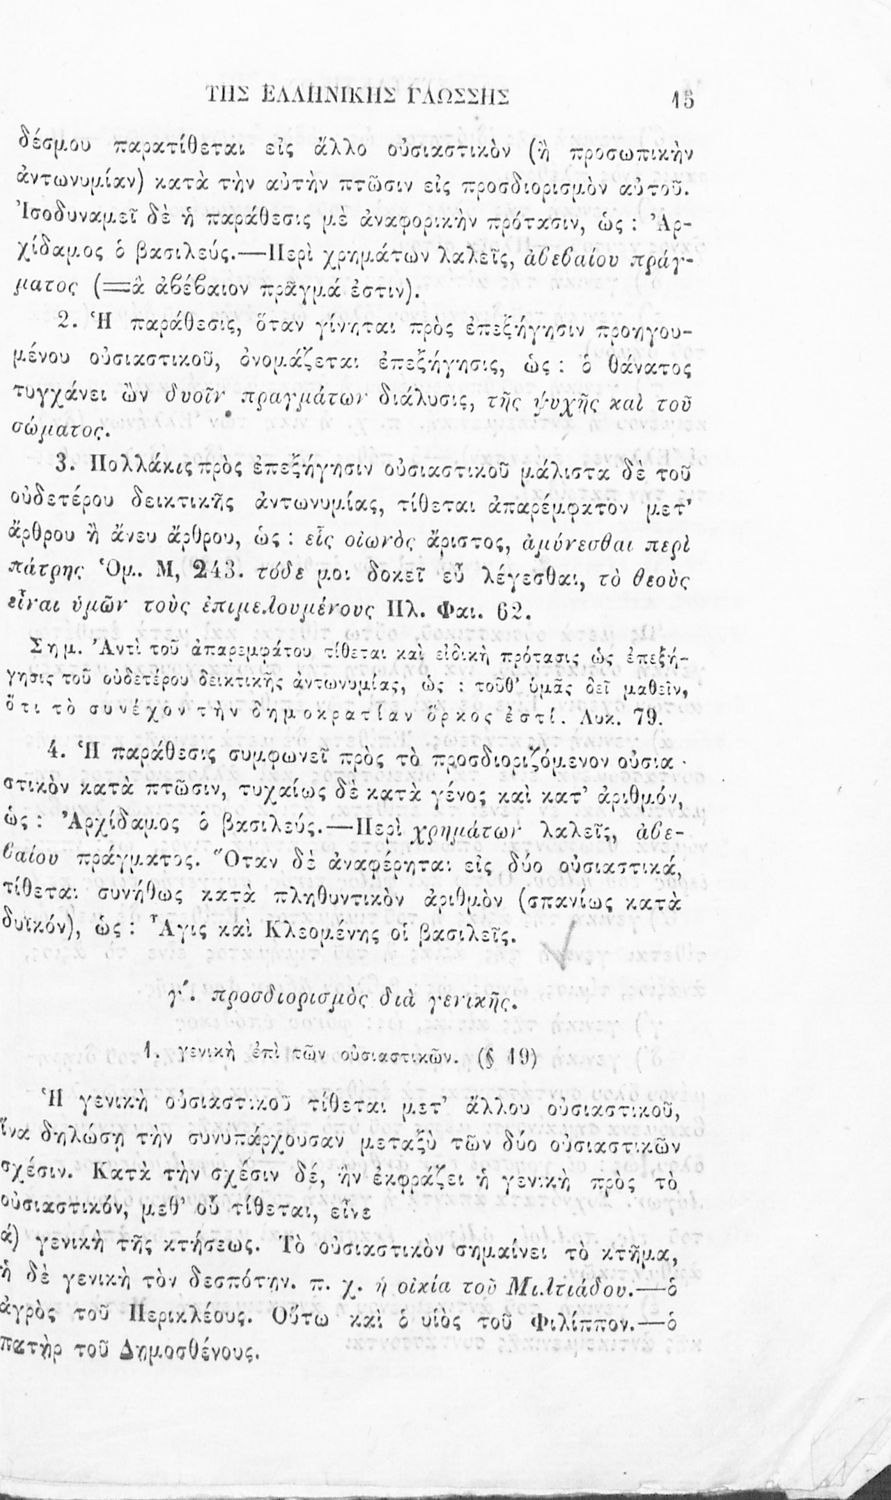 ΤΗΣ ΕΛΛΗΝΙΚΗΣ ΓΛΩΣΣΗΣ 15
δέσμου παρατίθεται εἰς ἄλλο οὐσιαστικὸν (ἢ προσωπικὴν
ἀντωνυμίαν) κατὰ τὴν αὐτὴν πτῶσιν εἰς προσδιορισμὸν αὐτοῦ.
Ἰσοδυναμεῖ δὲ ἡ παράθεσις μὲ ἀναφορικὴν πρότασιν, ὡς : Ἀρ-
χίδαμος ὁ βασιλεύς.—Περὶ χρημάτων λαλεῖς, ἀβεβαίου πράγ-
ματος (=ἃ ἀβέβαιον πρᾶγμά ἐστιν).
2. Ἡ παράθεσις, ὅταν γίνηται πρὸς ἐπεξήγησιν προηγου-
μένου οὐσιαστικοῦ, ὀνομάζεται ἐπεξήγησις, ὡς : ὁ θάνατος
τυγχάνει ὢν δυοῖν πραγμάτων διάλυσις, τῆς ψυχῆς καὶ τοῦ
σώματος.
3. Πολλάκις πρὸς ἐπεξήγησιν οὐσιαστικοῦ μάλιστα δὲ τοῦ
οὐδετέρου δεικτικῆς ἀντωνυμίας, τίθεται ἀπαρέμφατον μετ'
ἄρθρου ἢ ἄνευ ἄρθρου, ὡς : εἷς οἰωνὸς ἄριστος, ἀμύνεσθαι περὶ
πάτρης Ὁμ. Μ, 243. τόδε μοι δοκεῖ εὖ λέγεσθαι, τὸ θεοὺς
εἶναι ὑμῶν τοὺς ἐπιμελουμένους Πλ. Φαι. 62.
Σημ. Ἀντὶ τοῦ ἀπαρεμφάτου τίθεται καὶ εἰδικὴ πρότασις ὡς ἐπεξή-
γησις τοῦ οὐδετέρου δεικτικῆς ἀντωνυμίας, ὡς : τοῦθ' ὑμᾶς δεῖ μαθεῖν,
ὅτι τὸ συνέχον τὴν δημοκρατίαν ὅρκος ἐστί. Λυκ. 79.
4. Ἡ παράθεσις συμφωνεῖ πρὸς τὸ προσδιοριζόμενον οὐσια-
στικὸν κατὰ πτῶσιν, τυχαίως δὲ κατὰ γένος καὶ κατ' ἀριθμόν,
ὡς : Ἀρχίδαμος ὁ βασιλεύς.—Περὶ χρημάτων λαλεῖς, ἀβε-
βαίου πράγματος. Ὅταν δὲ ἀναφέρηται εἰς δύο οὐσιαστικά,
τίθεται συνήθως κατὰ πληθυντικὸν ἀριθμὸν (σπανίως κατὰ
δυϊκόν), ὡς : Ἆγις καὶ Κλεομένης οἱ βασιλεῖς.
γ΄. προσδιορισμὸς διὰ γενικῆς.
1. γενικὴ ἐπὶ τῶν οὐσιαστικῶν. (§ 19)
Ἡ γενικὴ οὐσιαστικοῦ τίθεται μετ' ἄλλου οὐσιαστικοῦ,
ἵνα δηλώσῃ τὴν συνυπάρχουσαν μεταξὺ τῶν δύο οὐσιαστικῶν
σχέσιν. Κατὰ τὴν σχέσιν δέ, ἣν ἐκφράζει ἡ γενικὴ πρὸς τὸ
οὐσιαστικόν, μεθ' οὗ τίθεται, εἶνε
ά) γενικὴ τῆς κτήσεως. Τὸ οὐσιαστικὸν σημαίνει τὸ κτῆμα,
ἡ δὲ γενικὴ τὸν δεσπότην. π. χ. ἡ οἰκία τοῦ Μιλτιάδου.—ὁ
ἀγρὸς τοῦ Περικλέους. Οὕτω καὶ ὁ υἱὸς τοῦ Φιλίππον.—ὁ
πατὴρ τοῦ Δημοσθένους.